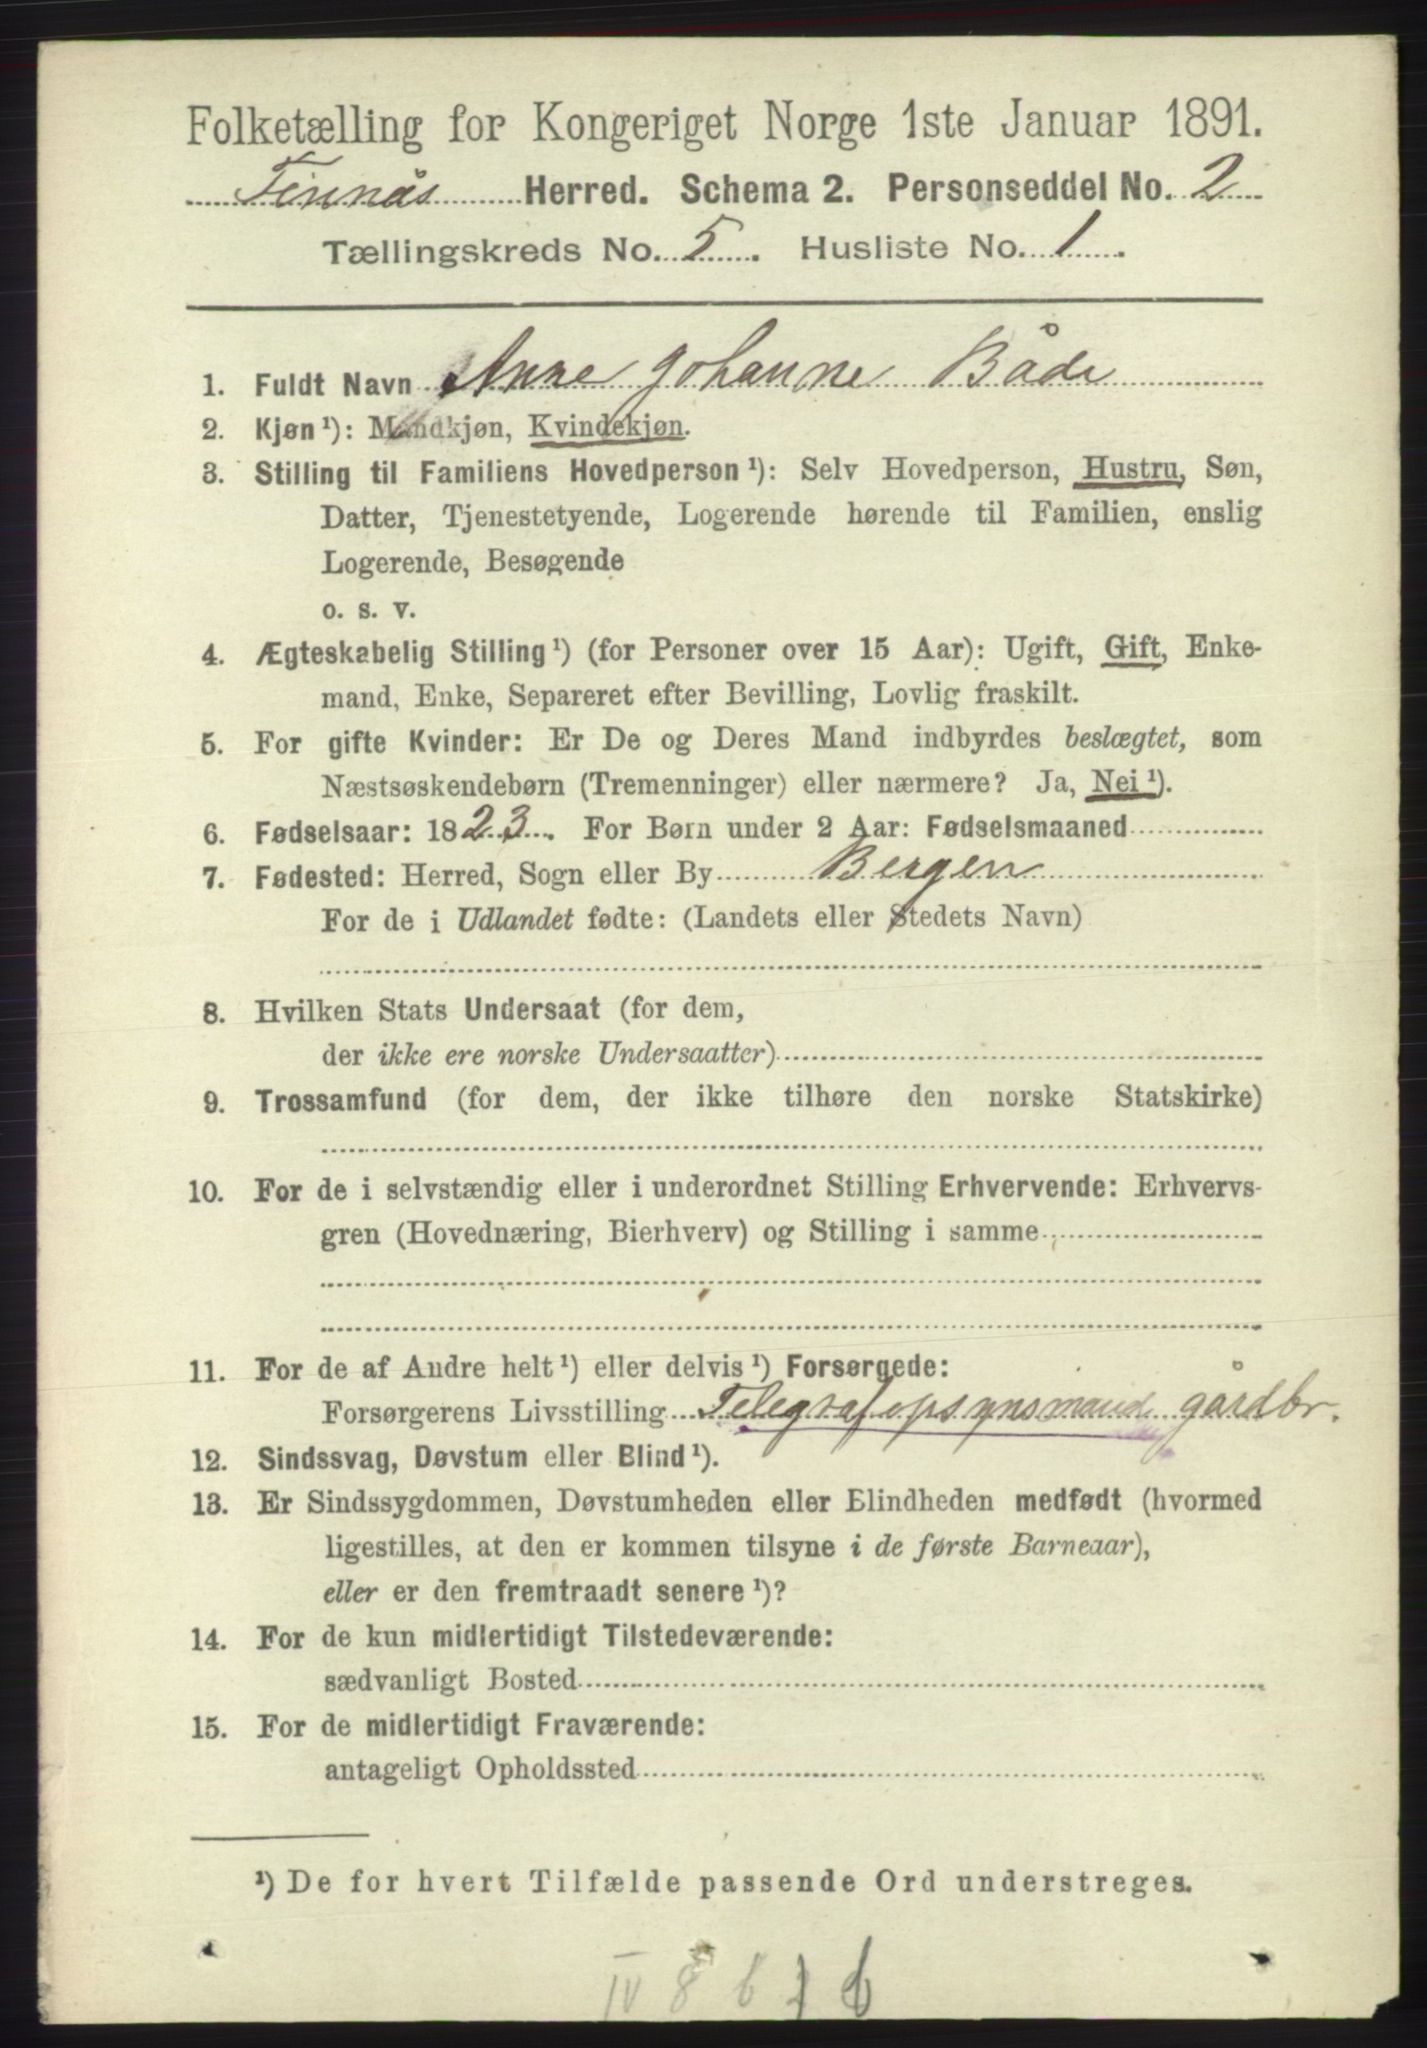 Folketælling for Kongeriget Norge 1ste Januar 1891.
Finnås Herred. Schema 2. Personseddel No. 2
Tællingskreds No. 5. Husliste No. 1.
1. Fuldt Navn Anne Johanne Både
2. Kjøn¹): Mandkjøn, Kvindekjøn.
3. Stilling til Familiens Hovedperson¹): Selv Hovedperson, Hustru, Søn,
Datter, Tjenestetyende, Logerende hørende til Familien, enslig
Logerende, Besøgende
o. s. v.
4. Ægteskabelig Stilling¹) (for Personer over 15 Aar): Ugift, Gift, Enke-
mand, Enke, Separeret efter Bevilling, Lovlig fraskilt.
5. For gifte Kvinder: Er De og Deres Mand indbyrdes beslægtet, som
Næstsøskendebørn (Tremenninger) eller nærmere? Ja, Nei¹).
6. Fødselsaar: 1823. For Børn under 2 Aar: Fødselsmaaned
7. Fødested: Herred, Sogn eller By Bergen
For de i Udlandet fødte: (Landets eller Stedets Navn)
8. Hvilken Stats Undersaat (for dem,
der ikke ere norske Undersaatter)
9. Trossamfund (for dem, der ikke tilhøre den norske Statskirke)
10. For de i selvstændig eller i underordnet Stilling Erhvervende: Erhvervs-
gren (Hovednæring, Bierhverv) og Stilling i samme
11. For de af Andre helt¹) eller delvis¹) Forsørgede:
Forsørgerens Livsstilling Telegrafopsynsmand gårdbr.
12. Sindssvag, Døvstum eller Blind¹).
13. Er Sindssygdommen, Døvstumheden eller Blindheden medfødt (hvormed
ligestilles, at den er kommen tilsyne i de første Barneaar),
eller er den fremtraadt senere¹)?
14. For de kun midlertidigt Tilstedeværende:
sædvanligt Bosted
15. For de midlertidigt Fraværende:
antageligt Opholdssted
¹) De for hvert Tilfælde passende Ord understreges.
IV 8 6 1 6